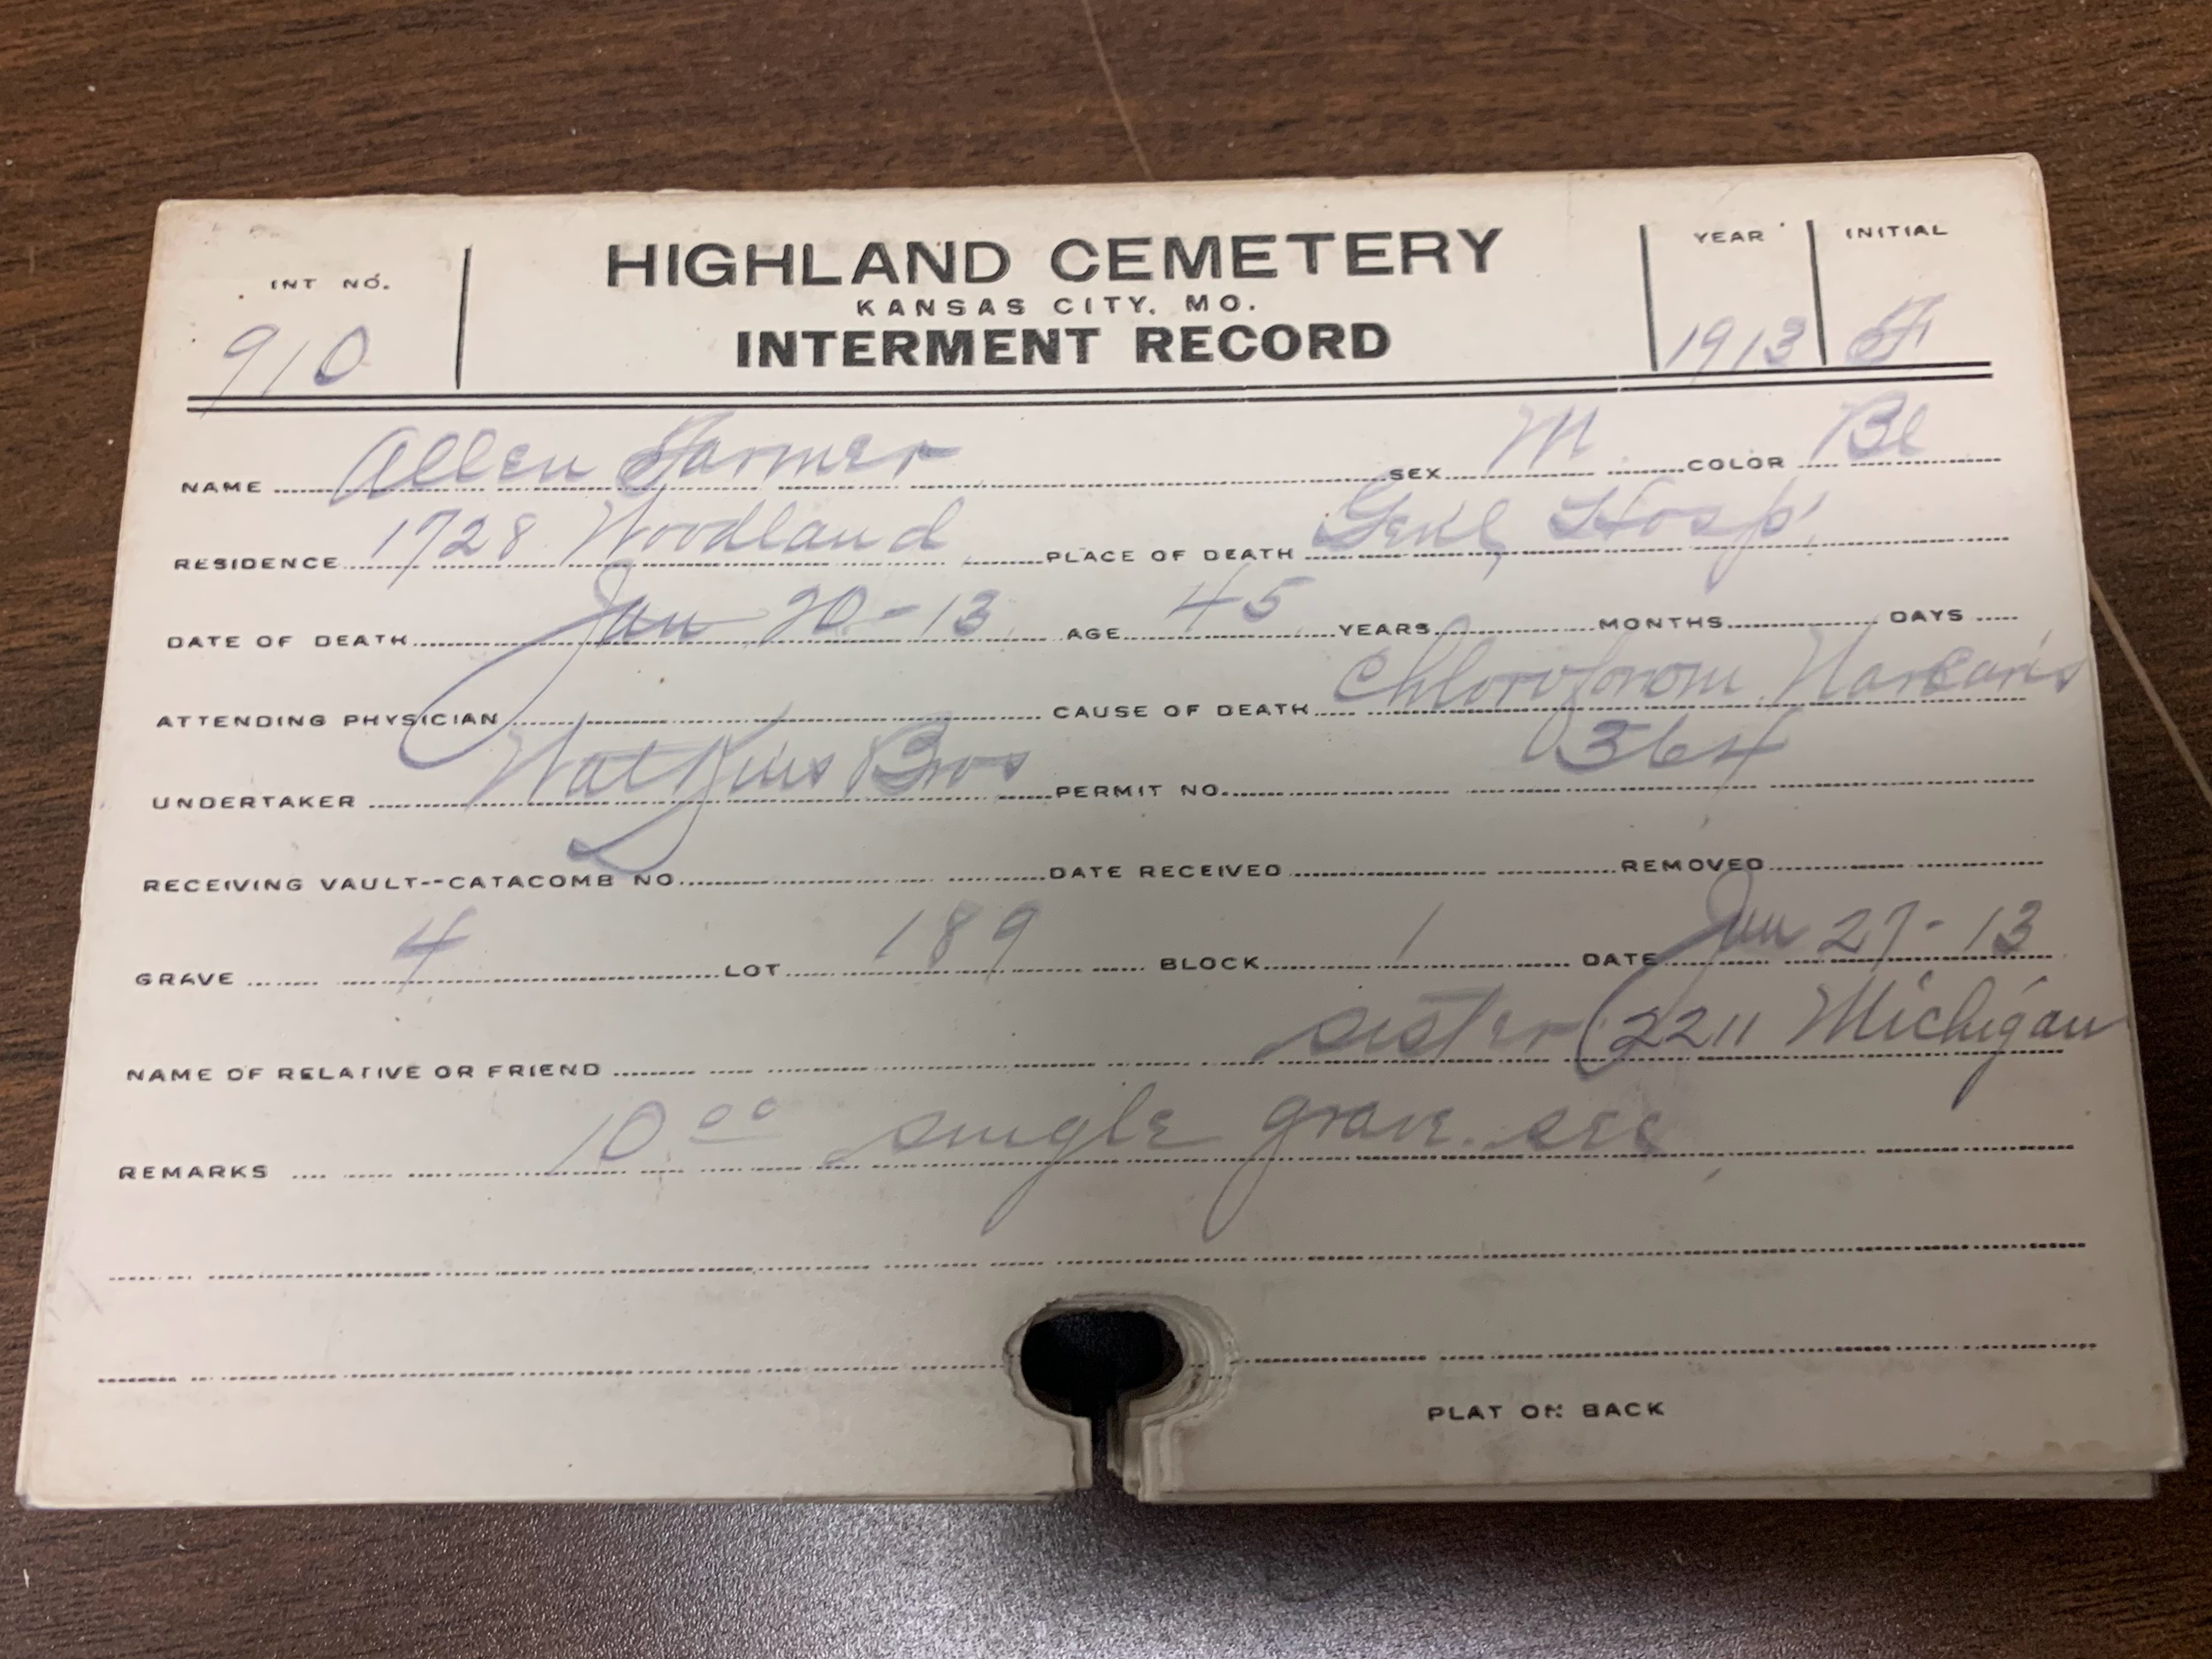 INT NO. HIGHLAND CEMETERY YEAR INITIAL
KANSAS CITY, MO.
910 INTERMENT RECORD 1913 F
NAME Allen Farmer SEX M COLOR Bl
RESIDENCE 1728 Woodland PLACE OF DEATH Genl, Hosp,
DATE OF DEATH Jan 20-13 AGE 45 YEARS MONTHS DAYS
ATTENDING PHYSICIAN CAUSE OF DEATH Chloroform
UNDERTAKER Watkins Bros PERMIT NO. 364
RECEIVING VAULT--CATACOMB NO. DATE RECEIVED REMOVED
GRAVE 4 LOT 189 BLOCK 1 DATE Jan 27-13
NAME OF RELATIVE OR FRIEND sister (2211 Michigan
REMARKS 10 00 single grave. sec
PLAT ON BACK